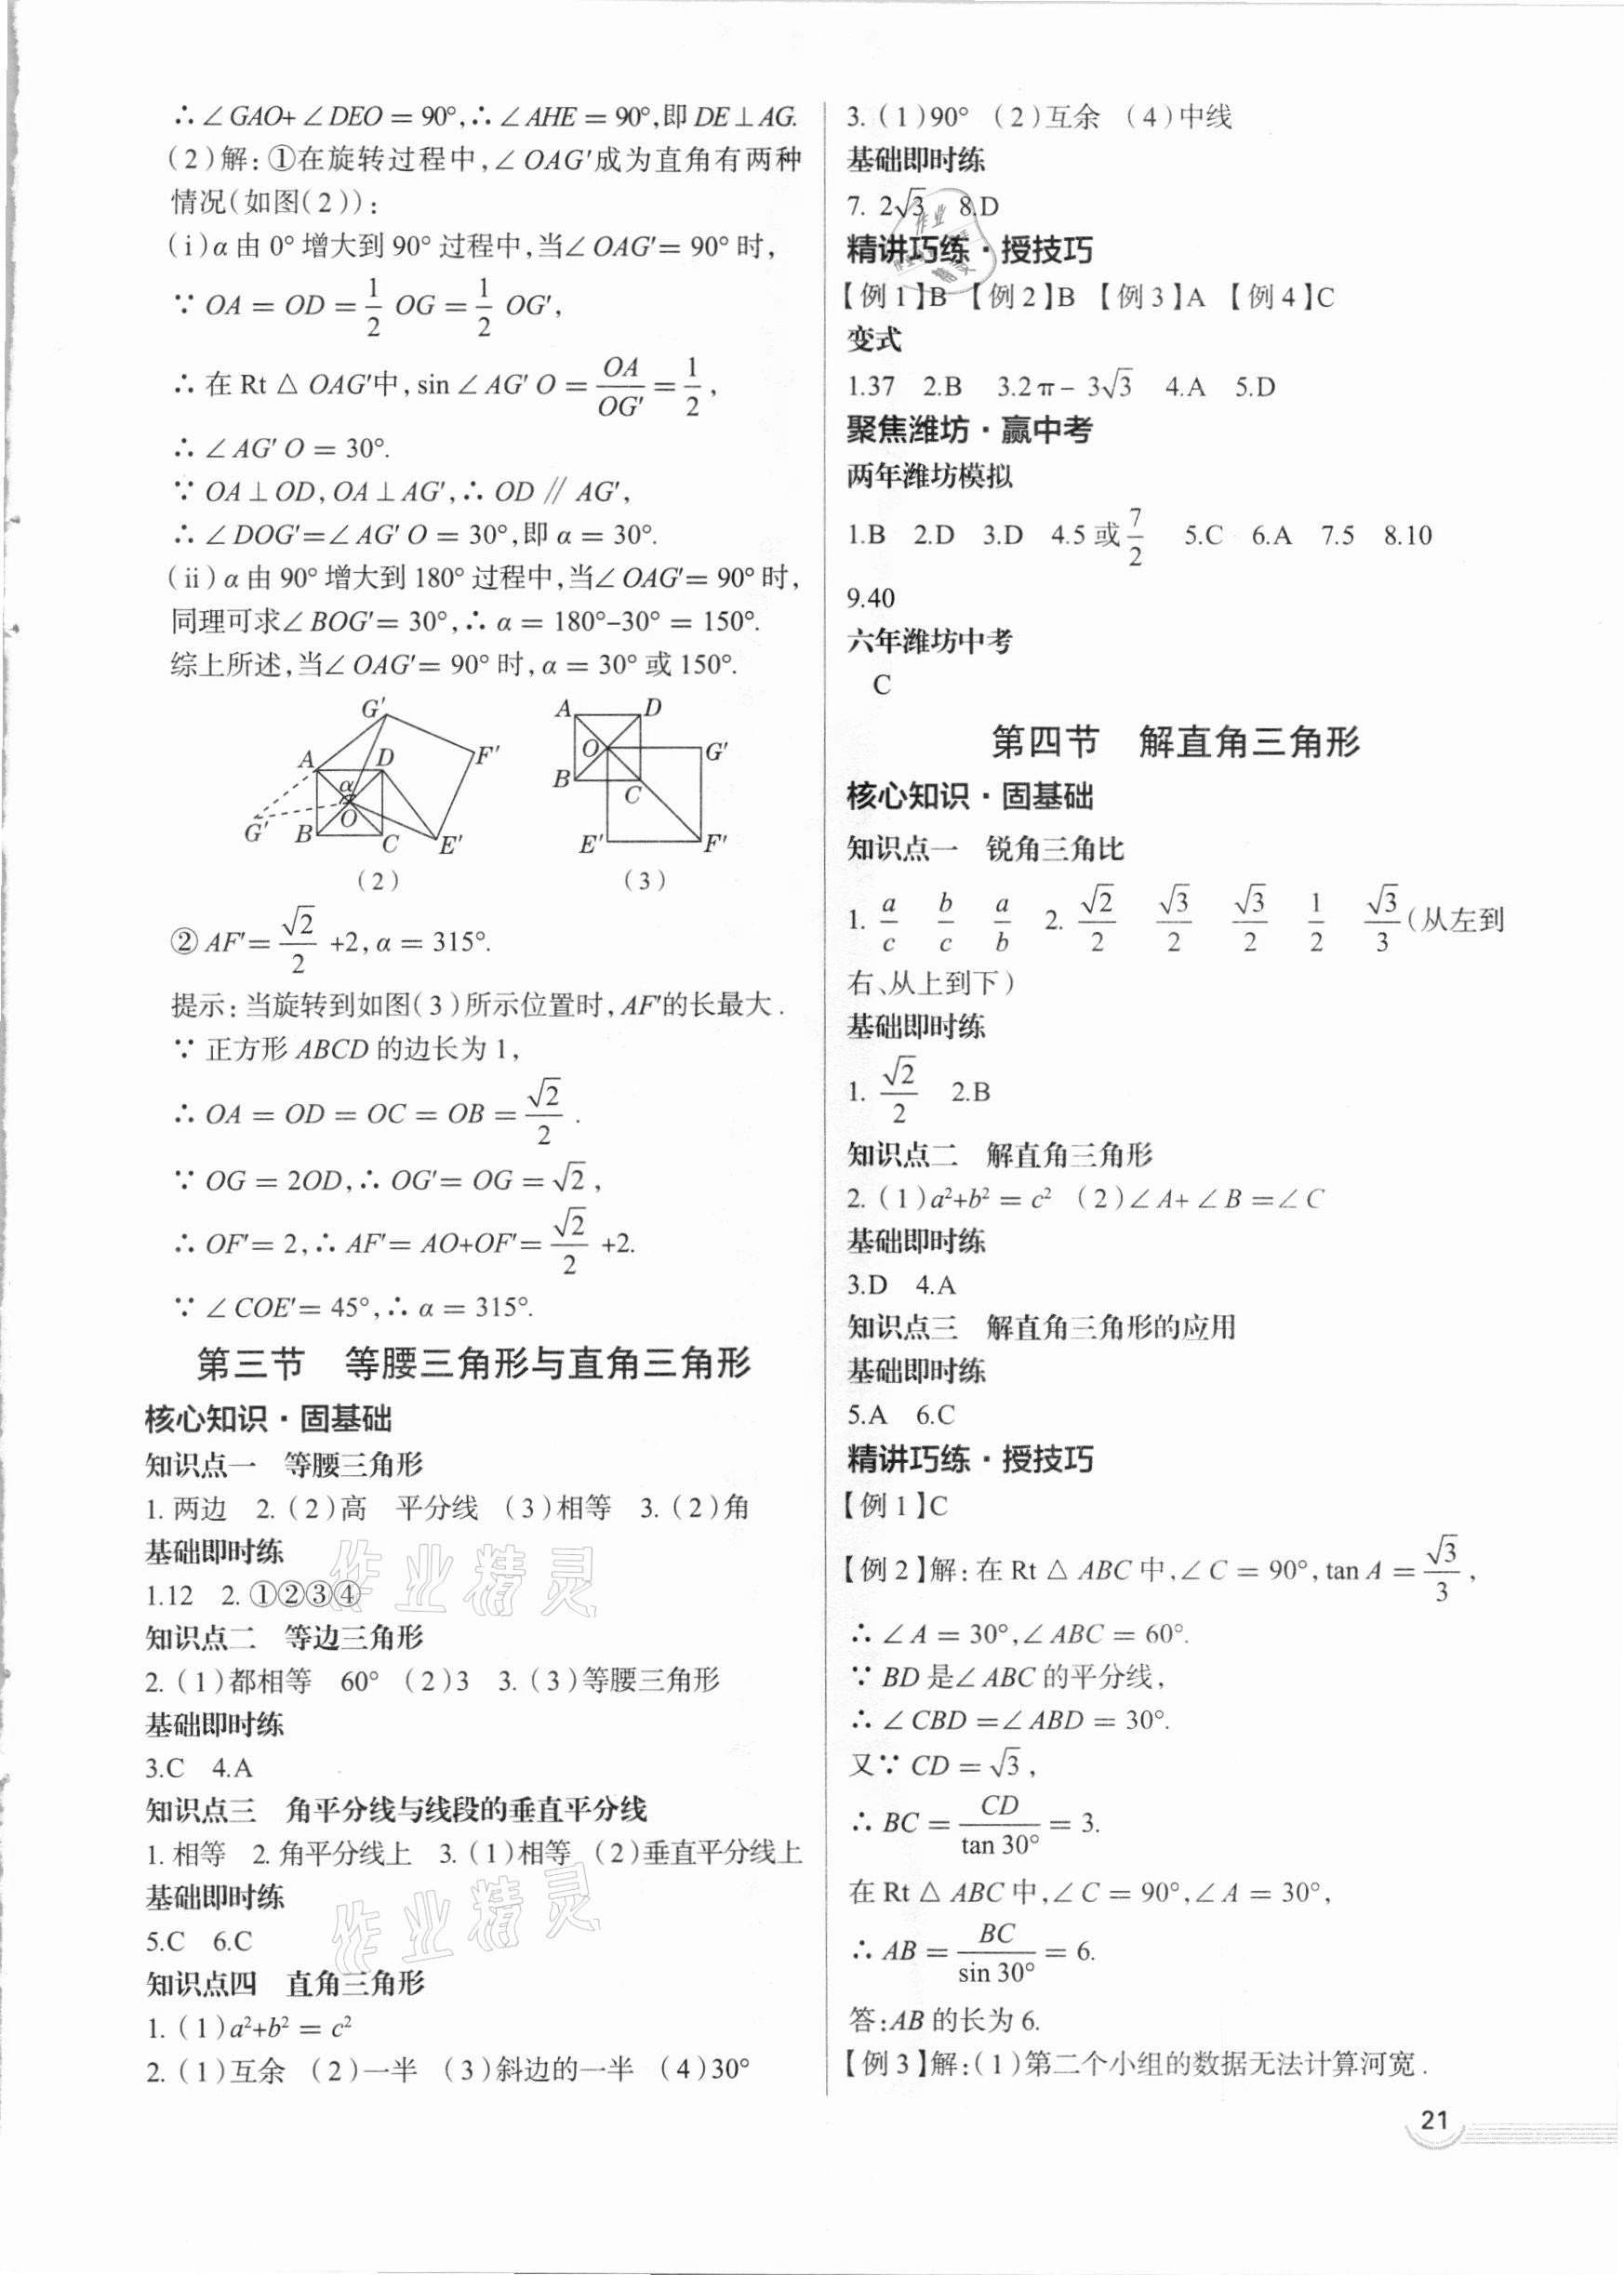 ∴∠GAO+∠DEO=90°,∴∠AHE=90°,即DE⊥AG.
(2)解:①在旋转过程中,∠OAG′成为直角有两种
情况(如图(2)):
(ⅰ)α由0°增大到90°过程中,当∠OAG′=90°时,
∵OA=OD=1/2 OG=1/2 OG′,
∴在Rt△OAG′中,sin∠AG′O=OA/OG′=1/2,
∴∠AG′O=30°.
∵OA⊥OD,OA⊥AG′,∴OD∥AG′,
∴∠DOG′=∠AG′O=30°,即α=30°.
(ⅱ)α由90°增大到180°过程中,当∠OAG′=90°时,
同理可求∠BOG′=30°,∴α=180°-30°=150°.
综上所述,当∠OAG′=90°时,α=30°或150°.
G′ A D F′ α O G′ B C E′
(2)
A D O G′ B C E′ F′
(3)
②AF′=√2/2+2,α=315°.
提示:当旋转到如图(3)所示位置时,AF′的长最大.
∵正方形ABCD的边长为1,
∴OA=OD=OC=OB=√2/2.
∵OG=2OD,∴OG′=OG=√2,
∴OF′=2,∴AF′=AO+OF′=√2/2+2.
∵∠COE′=45°,∴α=315°.
第三节 等腰三角形与直角三角形
核心知识·固基础
知识点一 等腰三角形
1.两边 2.(2)高 平分线 (3)相等 3.(2)角
基础即时练
1.12 2.①②③④
知识点二 等边三角形
2.(1)都相等 60° (2)3 3.(3)等腰三角形
基础即时练
3.C 4.A
知识点三 角平分线与线段的垂直平分线
1.相等 2.角平分线上 3.(1)相等 (2)垂直平分线上
基础即时练
5.C 6.C
知识点四 直角三角形
1.(1)a²+b²=c²
2.(1)互余 (2)一半 (3)斜边的一半 (4)30°
3.(1)90° (2)互余 (4)中线
基础即时练
7.2√3 8.D
精讲巧练·授技巧
【例1】B 【例2】B 【例3】A 【例4】C
变式
1.37 2.B 3.2π-3√3 4.A 5.D
聚焦潍坊·赢中考
两年潍坊模拟
1.B 2.D 3.D 4.5或7/2 5.C 6.A 7.5 8.10
9.40
六年潍坊中考
C
第四节 解直角三角形
核心知识·固基础
知识点一 锐角三角比
1.a/c b/c a/b 2.√2/2 √3/2 √3/2 1/2 √3/3(从左到
右、从上到下)
基础即时练
1.√2/2 2.B
知识点二 解直角三角形
2.(1)a²+b²=c² (2)∠A+∠B=∠C
基础即时练
3.D 4.A
知识点三 解直角三角形的应用
基础即时练
5.A 6.C
精讲巧练·授技巧
【例1】C
【例2】解:在Rt△ABC中,∠C=90°,tan A=√3/3,
∴∠A=30°,∠ABC=60°.
∵BD是∠ABC的平分线,
∴∠CBD=∠ABD=30°.
又∵CD=√3,
∴BC=CD/tan 30°=3.
在Rt△ABC中,∠C=90°,∠A=30°,
∴AB=BC/sin 30°=6.
答:AB的长为6.
【例3】解:(1)第二个小组的数据无法计算河宽.
21
作业精灵
作业精灵